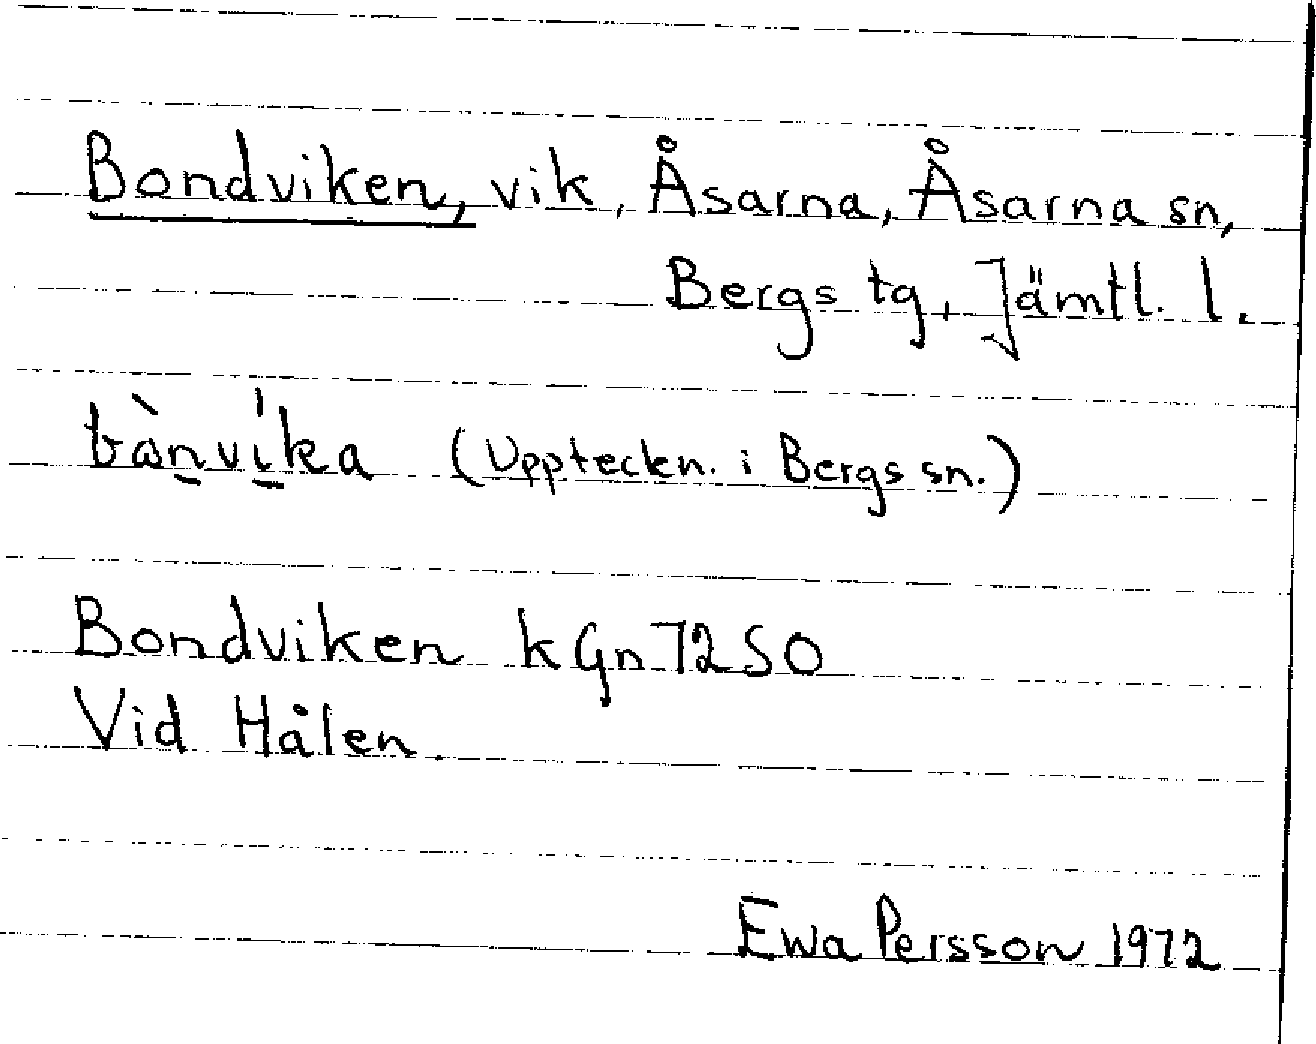 Bondviken, vik, Åsarna, Åsarna sn,
Bergs tg, Jämtl. l.
bànvíka (Uppteckn. i Bergs sn.)
Bondviken kGn 72SO
Vid Hålen.
Ewa Persson 1972